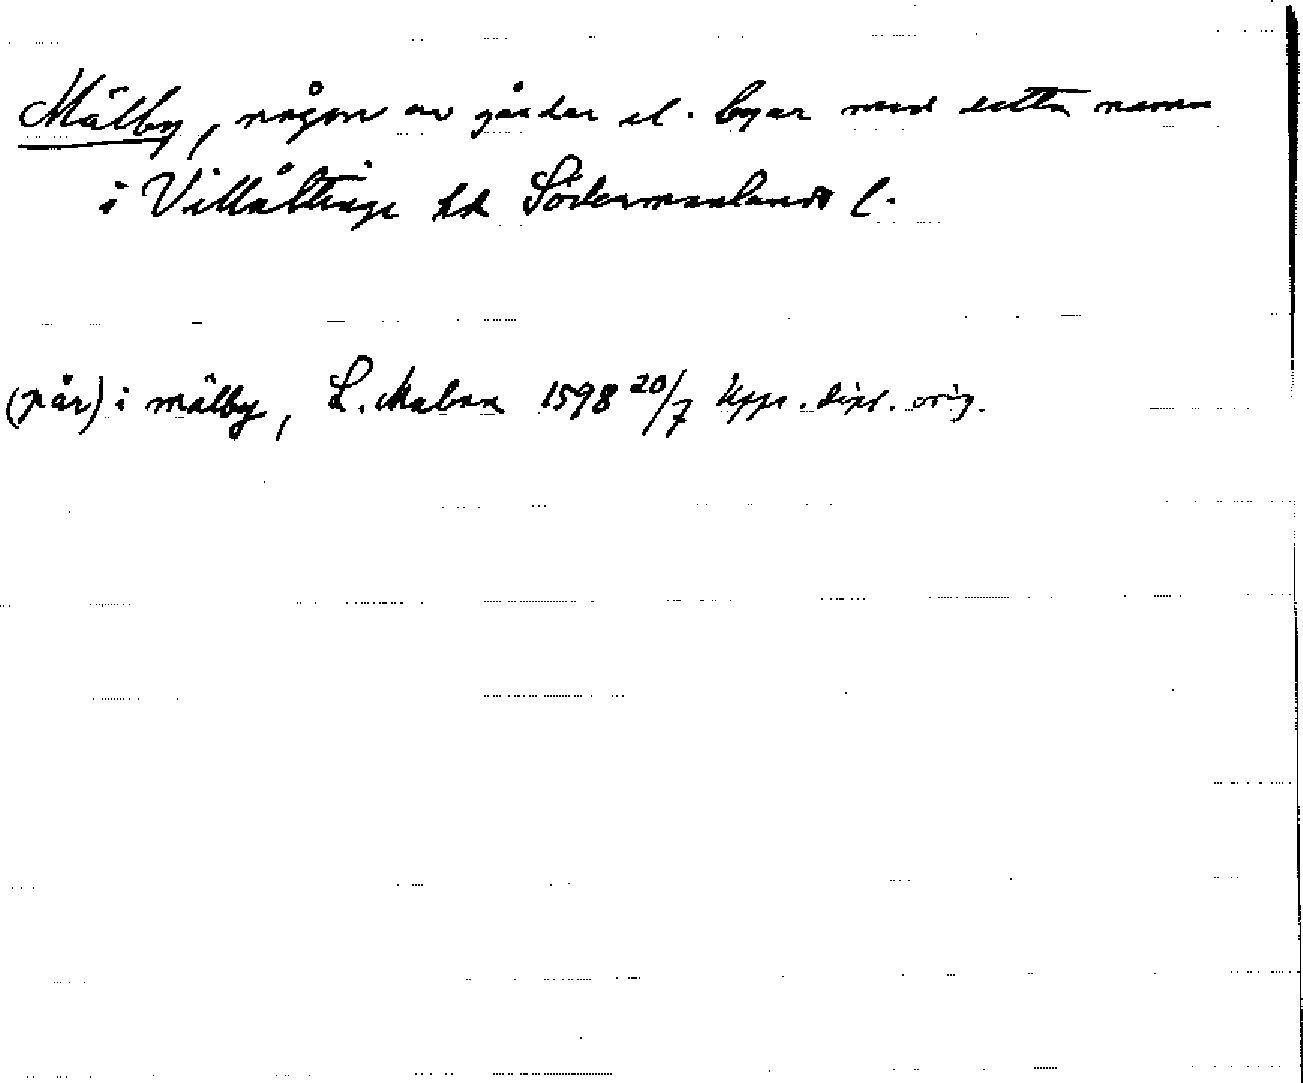 Mälby, någon av gårdar el. byar med detta namn
i Villåttinge hd Södermanlands l.
(pår) i mälby, L. Malma 1598 20/7 Upps. dipl. orig.